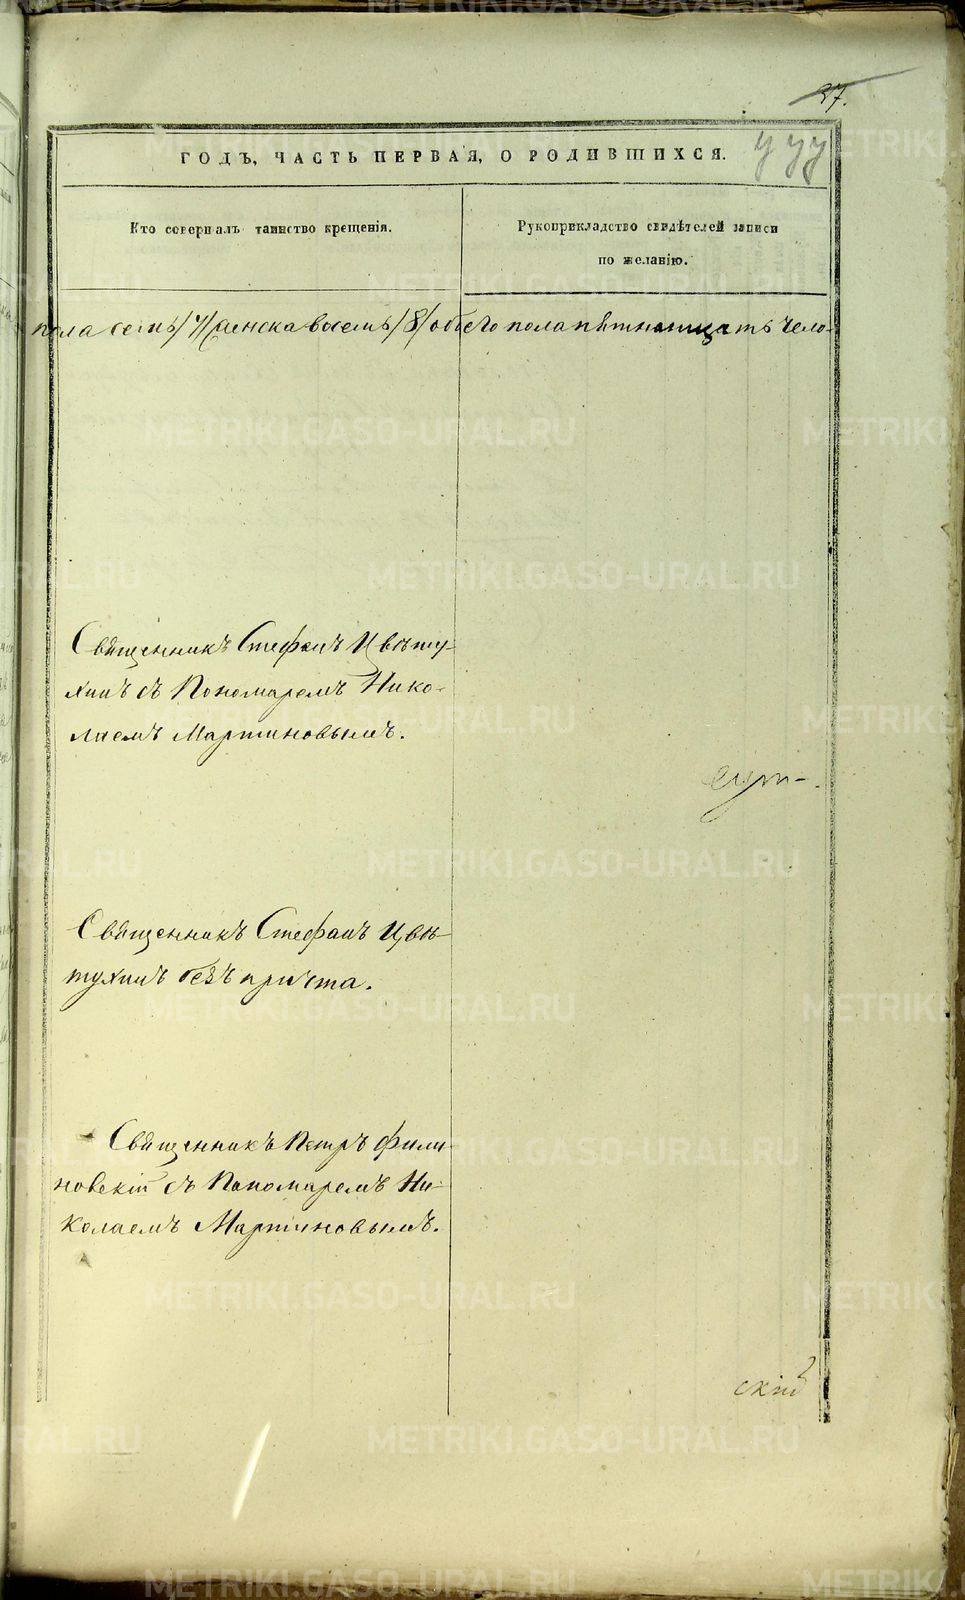 37.
ГОДЪ, ЧАСТЬ ПЕРВАЯ, О РОДИВШИХСЯ.
Кто совершалъ таинство крещенія.
Рукоприкладство свидѣтелей записи
по желанію.
пола семь /7/ женска восемь /8/ обоего пола пятнанцать чело-
Священникъ Стефанъ Цвѣту-
хинъ съ Пономаремъ Нико-
лаемъ Мартиновымъ.
Священникъ Стефанъ Цвѣ-
тухинъ безъ причта.
Священникъ Петръ Фили
новскій съ Пономаремъ Ни-
колаемъ Мартиновымъ.
скій
METRIKI.GASO-URAL.RU